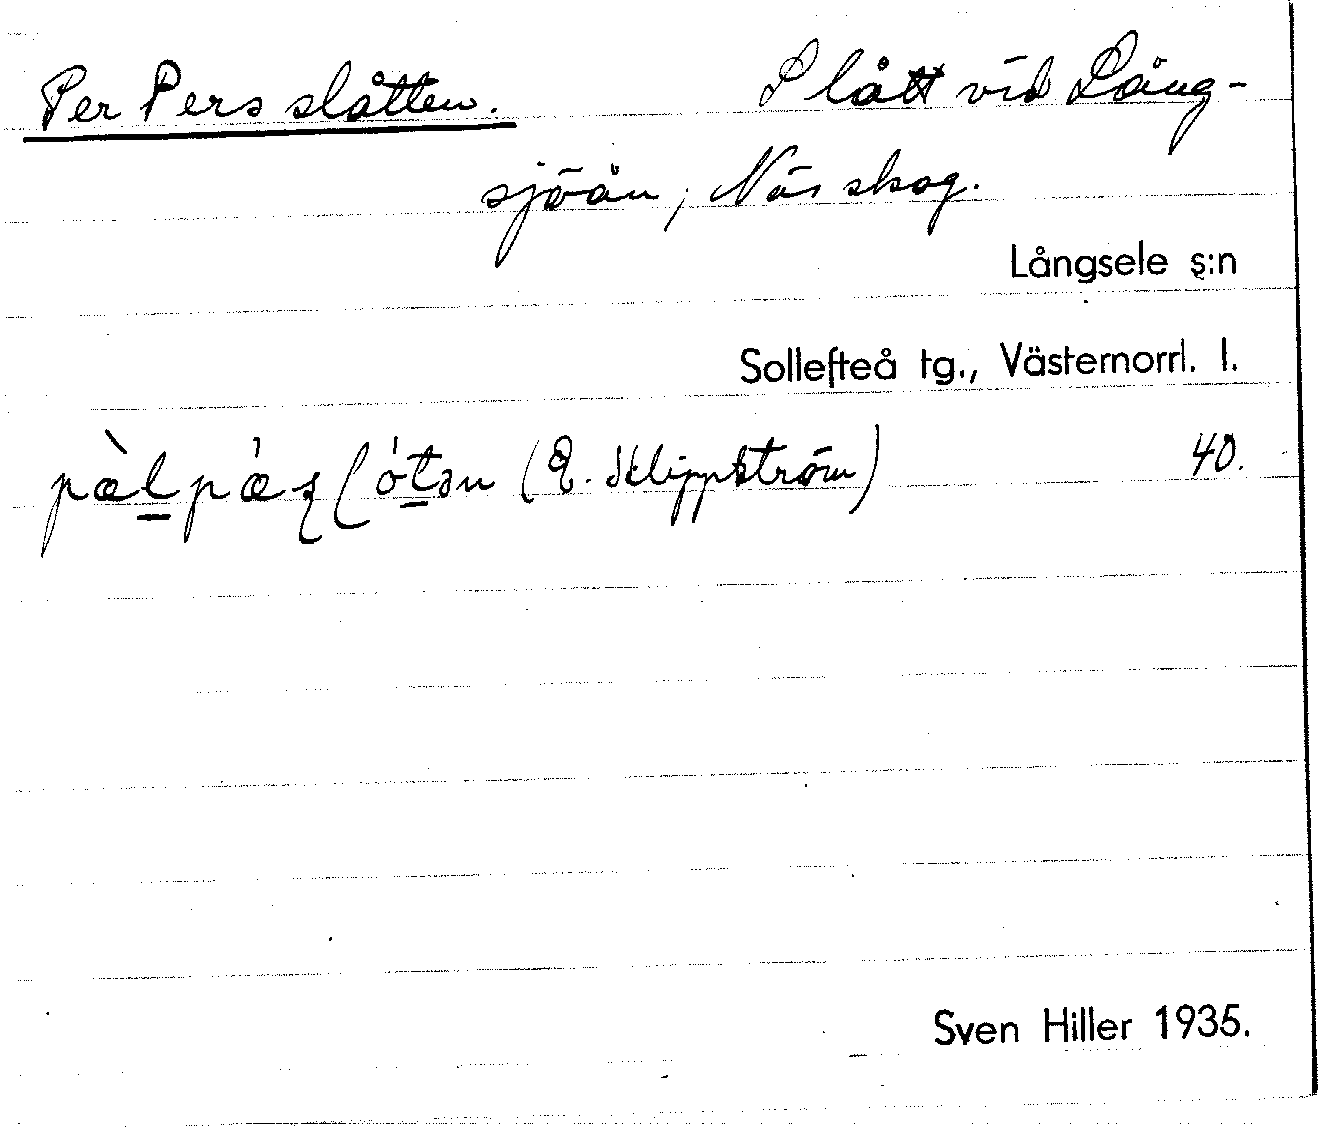 Per Pers slåtten. Slått vid Lång-
sjöån, Näs skog.
Långsele s:n
Sollefteå tg., Västernorrl. l.
(E. Klippström) 40.
Sven Hiller 1935.